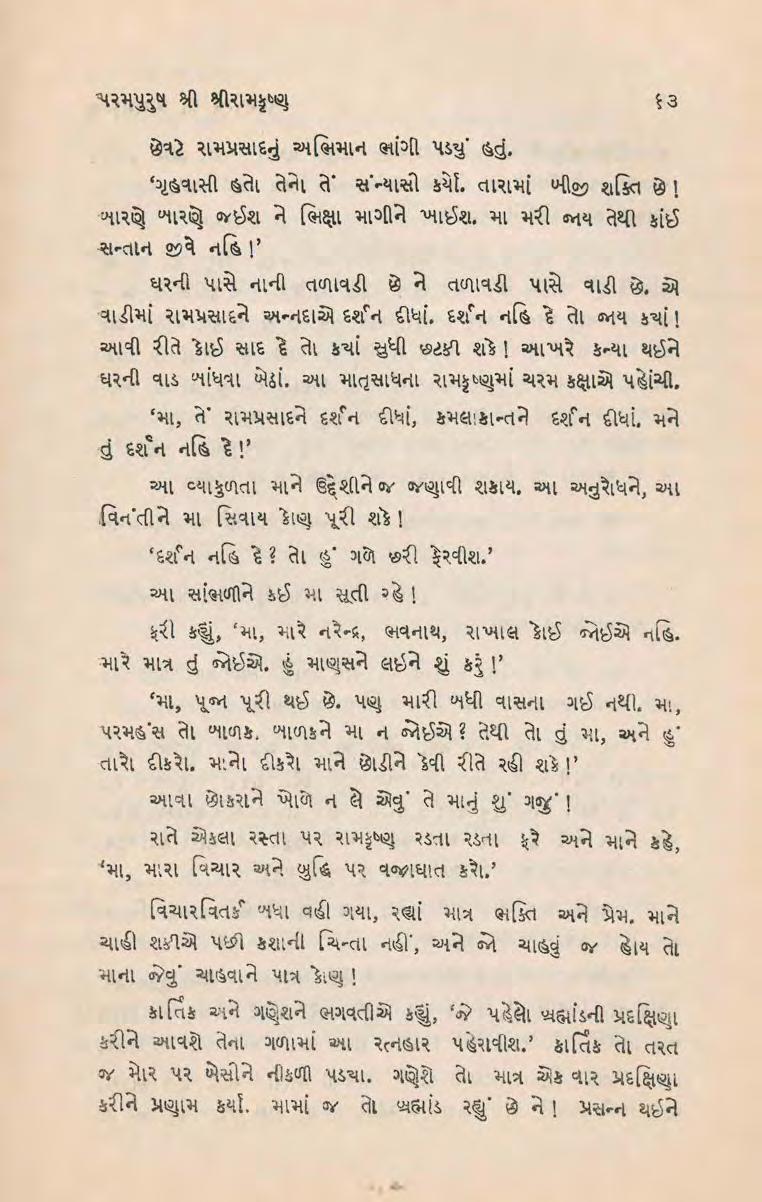 પરમપુરુષ શ્રી શ્રીરામકૃષ્ણ ૬૩
છેવટે રામપ્રસાદનું અભિમાન ભાંગી પડ્યું હતું.
‘ગૃહવાસી હતો તેનો તેં સંન્યાસી કર્યો. તારામાં બીજી શક્તિ છે!
બારણે બારણે જઈશ ને ભિક્ષા માગીને ખાઈશ. મા મરી જાય તેથી કાંઈ
સન્તાન જીવે નહિ!’
ઘરની પાસે નાની તળાવડી છે ને તળાવડી પાસે વાડી છે. એ
વાડીમાં રામપ્રસાદને અન્નદાએ દર્શન દીધાં. દર્શન નહિ દે તો જાય ક્યાં!
આવી રીતે કોઈ સાદ દે તો ક્યાં સુધી છટકી શકે! આખરે કન્યા થઈને
ઘરની વાડ બાંધવા બેઠાં. આ માતૃસાધના રામકૃષ્ણમાં ચરમ કક્ષાએ પહોંચી.
‘મા, તેં રામપ્રસાદને દર્શન દીધાં, કમલાકાન્તને દર્શન દીધાં. મને
તું દર્શન નહિ દે!’
આ વ્યાકુળતા માને ઉદ્દેશીને જ જણાવી શકાય. આ અનુરોધને, આ
વિનંતીને મા સિવાય કોણ પૂરી શકે!
‘દર્શન નહિ દે? તો હું ગળે છરી ફેરવીશ.’
આ સાંભળીને કઈ મા સૂતી રહે!
ફરી કહ્યું, ‘મા, મારે નરેન્દ્ર, ભવનાથ, રાખાલ કોઈ જોઈએ નહિ.
મારે માત્ર તું જોઈએ. હું માણસને લઇને શું કરું!’
‘મા, પૂજા પૂરી થઈ છે. પણ મારી બધી વાસના ગઈ નથી. મા,
પરમહંસ તો બાળક. બાળકને મા ન જોઈએ? તેથી તો તું મા, અને હું
તારો દીકરો. માનો દીકરો માને છોડીને કેવી રીતે રહી શકે!’
આવા છોકરાને ખોળે ન લે એવું તે માનું શું ગજું!
રાતે એકલા રસ્તા પર રામકૃષ્ણ રડતા રડતા ફરે અને માને કહે,
‘મા, મારા વિચાર અને બુદ્ધિ પર વજાઘાત કરો.’
વિચારવિતર્ક બધા વહી ગયા, રહ્યાં માત્ર ભક્તિ અને પ્રેમ. માને
ચાહી શકીએ પછી કશાની ચિન્તા નહીં, અને જો ચાહવું જ હોય તો
માના જેવું ચાહવાને પાત્ર કોણ!
કાર્તિક અને ગણેશને ભગવતીએ કહ્યું, ‘જે પહેલો બ્રહ્માંડની પ્રદક્ષિણા
કરીને આવશે તેના ગળામાં આ રત્નહાર પહેરાવીશ.’ કાર્તિક તો તરત
જ મોર પર બેસીને નીકળી પડ્યા. ગણેશે તો માત્ર એક વાર પ્રદક્ષિણા
કરીને પ્રણામ કર્યા. મામાં જ તો બ્રહ્માંડ રહ્યું છે ને! પ્રસન્ન થઈને